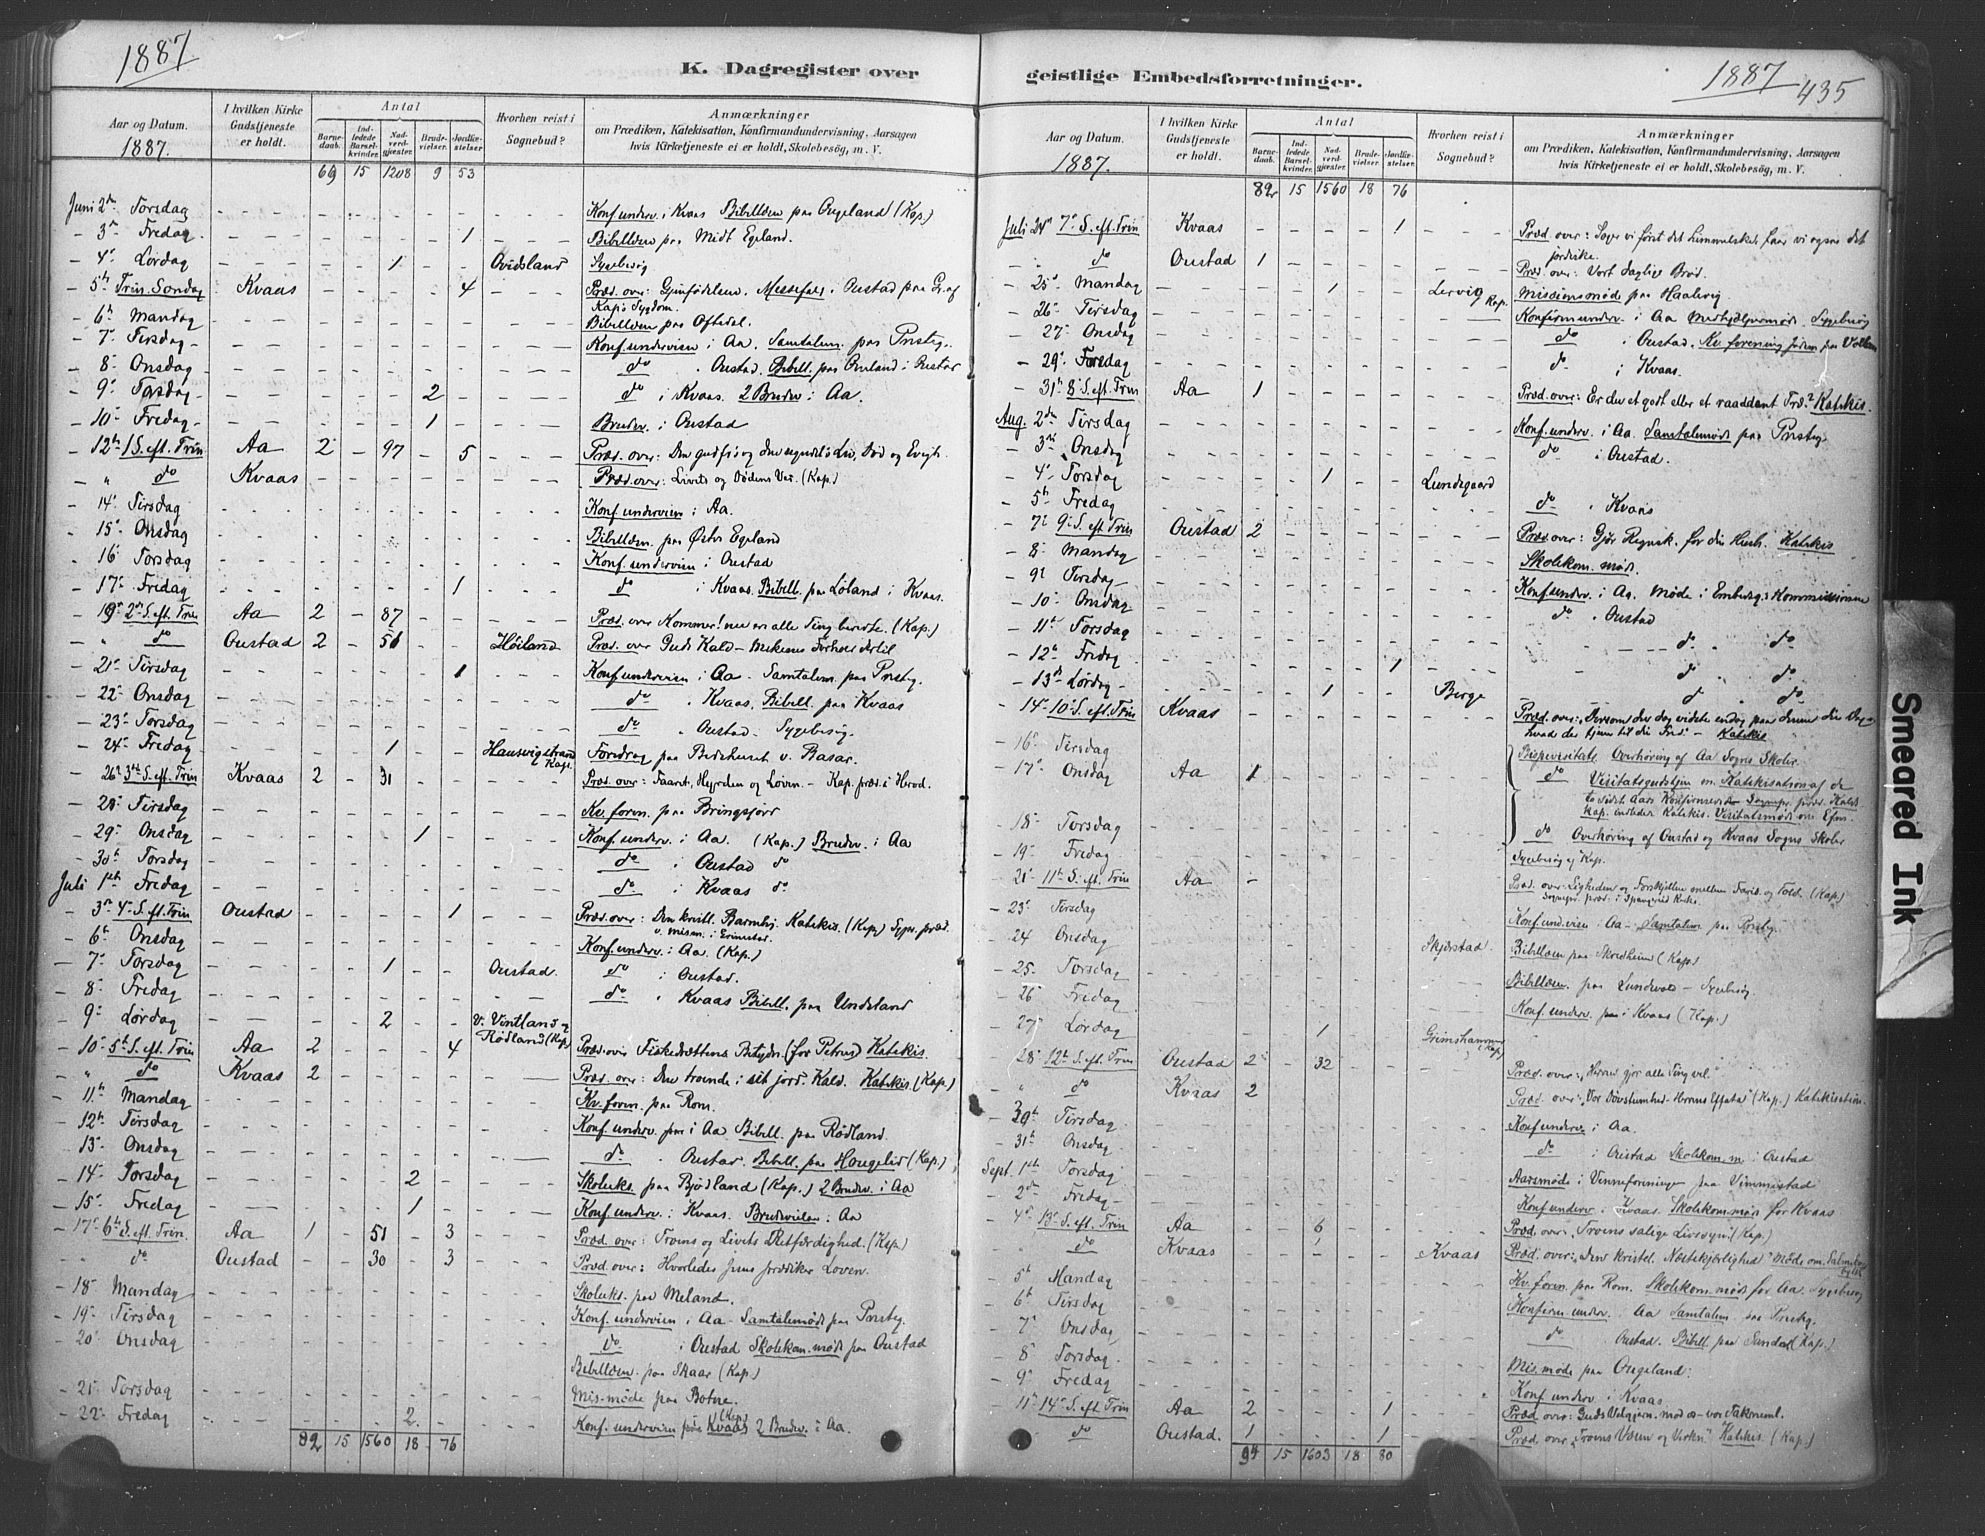 1887
K. Dagregister over
geistlige Embedsforretninger.
1887
435
Aar og Datum.
1887.
I hvilken Kirke Gudstjeneste er holdt.
Antal
Barnedaab.
Indledede Barselkvinder.
Nadverdgjæster.
Brudevielser.
Jordfæstelser
Hvorhen reist i Sognebud?
Anmærkninger
om Prædiken, Katekisation, Konfirmandundervisning, Aarsagen
hvis Kirketjeneste ei er holdt, Skolebesøg, m. V.
69 15 1208 9 53
Juni 2den Torsdag Konf.underv. i Kvaas Bibellæsn paa Ougeland (Kap.)
3die Fredag 1 Bibellæsn paa Midt Egeland.
4. Lørdag 1 Ovidsland Sygebesøg
5te Trin. Sondag Kvaas 4 Præd. over: Gjenfødelsen. Messefald i Oustad paa Gr. af
Kap's Sygdom.
6te Mandag Bibellæsn paa Oftedal.
7. Tirsdag Konf.undervisn i Aa. Samtalem. paa Prstg.
8. Onsdag do Oustad. Bibell. paa i Oustad
9. Torsdag 2 do i Kvaas. 2 Brudev. i Aa.
10. Fredag 1 Brudev. i Oustad
12te 1 S. eft. Trin Aa 2 97 5 Præd. over: Den gudfr. og den ugudel's Liv, Død og Evigh.
" do Kvaas Præd. over: Livets og Dødens Vei. (Kap.)
14. Tirsdag Konf.undervisn i Aa.
15. Onsdag Bibellæsn. paa Østre Egeland
16 Torsdag Konf.undervisn i Oustad
17. Fredag 1 do i Kvaas. Bibell. paa Løland i Kvaas.
19. 2den S. eft. Trin Aa 2 87 Præd. over Kommer! nu er alle Ting beredte. (Kap.)
" do Oustad 2 51 Høiland Præd. over Guds Kald – Menkens Forhold dertil
21. Tirsdag 1 Konf.undervisn i Aa – Samtalem paa Prstg.
22. Onsdag do Kvaas, Bibell. paa Kvaas
23. Torsdag do Oustad. Sygebesøg.
24. Fredag 1 Hausvigstrand Kap. Foredrag paa Bedehuset v. Basar.
26. 3die S. eft. Trin Kvaas 2 31 Præd. over: Faaret, Hyrden og Loven. – Kap. præd. i Herad.
28. Tirsdag Kv. foren. paa Bringsjord
29. Onsdag 1 Konf.underv. i Aa (Kap.) Brudev. i Aa
30te Torsdag do i Oustad do
Juli 1ste Fredag do i Kvaas do
3. 4. S. eft. Trin Oustad 1 Præd. over: Den kristl. Barmhj. Katekis. (Kap.)
6te Onsdag Konf.underv. i Aa (Kap.)
7. Torsdag 1 Oustad. do i Oustad.
8. Fredag do i Kvaas Bibell. paa Undeland
9. Lørdag 2 V. Vintland og
Rødland (Kap)
10. 5te S. eft. Trin Aa 2 4 Præd. over Fiskedrættens Betydn. (for Petrus) Katekis.
" do Kvaas 2 Præd. over: Den troende i sit jord. Kald. Katekis (Kap.)
11te Mandag Kv. foren. paa Rom.
12te Tirsdag Konf.underv. i Aa Bibell. paa Rødland.
13. Onsdag do Oustad. Bibell. paa Hougelid (Kap.)
14. Torsdag 2 Skoleeks. paa Bjødland (Kap.) 2 Brudev. i Aa
15. Fredag 1 Konf.underv. i Kvaas. Brudevielse i Aa
17. 6te S. eft. Trin Aa 1 51 3 Præd over: Troens og Livets Retfærdighed. (Kap.)
" do Oustad 30 3 Præd. over: Hvorledes Jesus prædiker Loven.
18 Mandag Skoleeks. paa Meland.
19. Tirsdag Konf.undervisn i Aa. Samtalemøde paa Prstg.
20. Onsdag do i Oustad Skolekom.møde paa Oustad
Bibellæsn. paa Skaar (Kap.)
21. Torsdag Mis.møde paa Botne.
22. Fredag 2 Konf.undervisn Kvaas (Kap.) 2 Brudev. i Aa.
82 15 1560 18 76
Aar og Datum.
1887.
I hvilken Kirke Gudstjeneste er holdt.
Antal
Barnedaab.
Indledede Barselkvinder.
Nadverdgjæster.
Brudevielser.
Jordfæstelser.
Hvorhen reist i Sognebud?
Anmærkninger
om Prædiken, Katekisation, Konfirmandundervisning, Aarsagen
hvis Kirketjeneste ei er holdt, Skolebesøg, m. V.
82 15 1560 18 76
Juli 24. 7. S. eft. Trin Kvaas 1 Præd. over: Søge vi først det himmelske, faar vi ogsaa det
jordiske.
" do Oustad 1 Præd. over: Vort daglige Brød.
25. Mandag 1 Lervig Kap. Missionsmøde paa Haalevig
26. Tirsdag Konfirmunderv. i Aa Medhjælpermøde. Sygebesøg
27. Onsdag do i Oustad. Kv. forening paa Vollen
29. Fredag do i Kvaas.
31te 8. S. eft. Trin Aa 1 Præd. over: Er du et godt eller et raaddent Træ? Katekis.
Aug. 2den Tirsdag Konf.underv. i Aa. Samtalemøde paa Prstg.
3die Onsdag do i Oustad.
4. Torsdag 1 Lundegaard
5te Fredag do i Kvaas
7. 9. S. eft. Trin Oustad 2 Præd. over: Gjør Regnsk. for din Hush. Katekis
8. Mandag Skolekom. møde.
9. Tirsdag Konf.underv. i Aa. Møde i Embedsg. Kommissionen
10. Onsdag do Oustad
11te Torsdag do do
12te Fredag 1 do do
13de Lørdag 1 Berge do do
14. 10. S. eft. Trin Kvaas Præd. over: Dersom du dog vidste endog paa denne din Dag
hvad der tjener til din Fred – Katekis
16. Tirsdag Bispevisitats Overhøring af Aa Sogns Skoler
17. Onsdag Aa 1 do Visitatsgudstjen m. Katekisation af de
to sidste Aars Konfirmerede. Sognepr. præd. Katek.
Kap. indleder Katekis. Visitatsmøde om Efm.
18. Torsdag do Overhøring af Oustad og Kvaas Sogns Skoler
19. Fredag Sygebesøg af Kap.
21. 11te S. eft. Trin Aa Præd. over: Ligheden og Forskjellen mellem Faris. og Told. (Kap.)
Sognepr. præd. i Spangereid Kirke.
23. Tirsdag Konf.undervisn Aa – Samtalem paa Prstg.
24 Onsdag Skjerstad. Bibellæsn paa Skredheim (Kap.)
25. Torsdag Bibellæsn. paa Lundevold – Sygebesøg.
26 Fredag Konf.underv. i Kvaas (Kap.)
27. Lørdag 1 Grimshammer (Kap)
28. 12te S. eft. Trin Oustad 2 32 Præd. over: "Herren gjør alle Ting vel."
" do Kvaas 2 Præd. over: "Vor Døvstumhed – Herrens Effata" (Kap.) Katekisation.
30te Tirsdag Konf.underv. i Aa.
31te Onsdag do i Oustad Skolekom.m. i Oustad
Sept. 1ste Torsdag Aarsmøde i Vinneforeningen paa Vimmestad
2den Fredag Konf.underv. i Kvaas. Skolekom.møde for Kvaas
4. 13. S. eft. Trin Aa 6 Præd. over: "Troens salige Livssyn." (Kap.)
do Kvaas 1 Kvaas Præd. over: "Den kristel. Næstekjærlighed" Møde om Salmebog
5te Mandag Kv. foren. paa Rom. Skolekom.møde for Aa. Sygebesøg
6te Tirsdag Konfirm.underv. Aa Samtalem. paa Prstg.
7. Onsdag do Oustad. Bibell. paa (Kap.)
8. Torsdag. Mis.møde paa Ougeland.
9. Fredag Konf.underv. i Kvaas.
11te 14. S. eft. Trin Aa 2 1 Præd. over: Guds Velgjern. mod os – vor Taknem.
do Oustad. 1 1 Præd. over "Troens Væsen og Virkn" Katekis. (Kap.)
94 15 1603 18 80
Smeared Ink